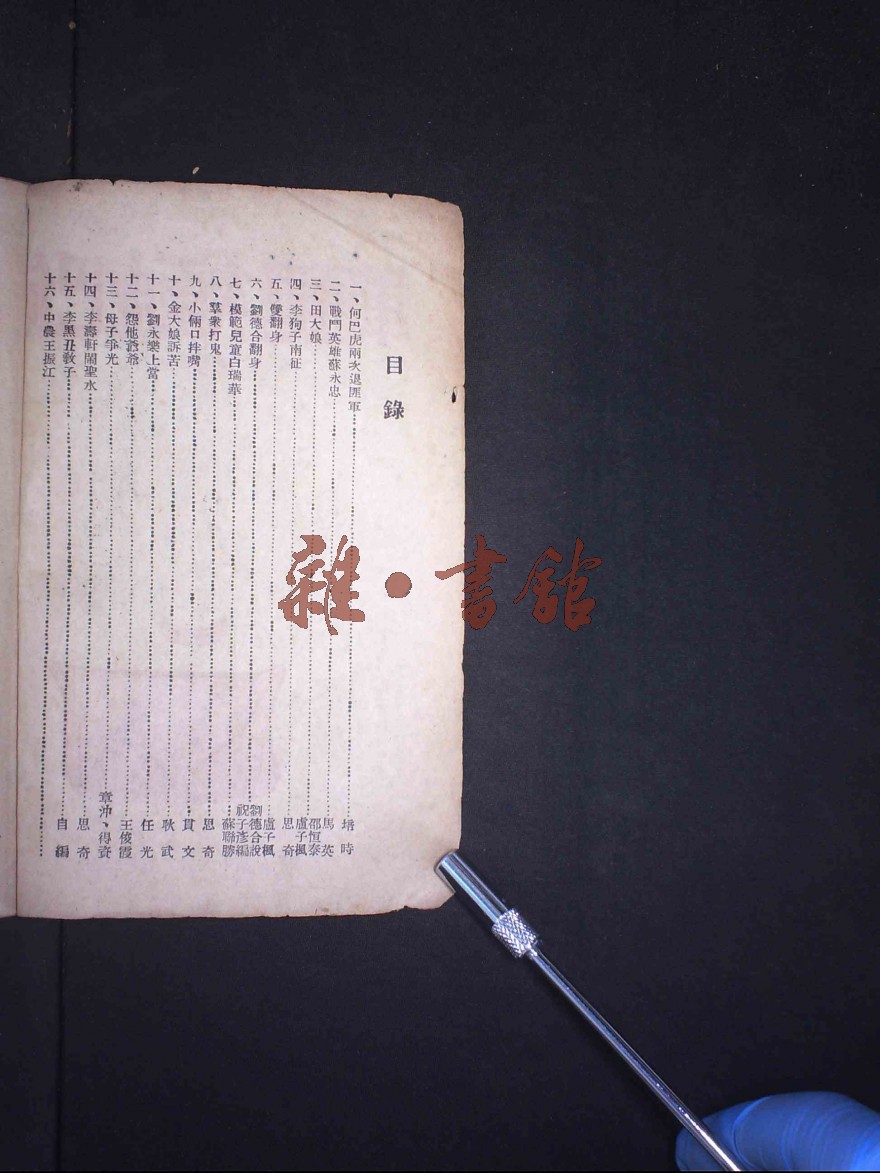 目錄
一、何巴虎兩次退匪軍……培時
二、戰鬥英雄蘇永忠……馬英
三、田大娘……邵恒泰 盧子楓
四、李狗子南征……思奇
五、雙翻身……盧子楓
六、劉德合翻身……劉德合說 祝子彥編
七、模範兒童白瑞華……蘇聯勝
八、羣衆打鬼……思奇
九、小倆口拌嘴……貫文
十、金大娘訴苦……耿武
十一、劉永樂上當……任光
十二、怨他爺爺……王俊霞
十三、母子爭光……章沖、得資
十四、李壽軒鬧聖水……思奇
十五、李黑丑敎子……自編
十六、中農王振江……
雜·書館